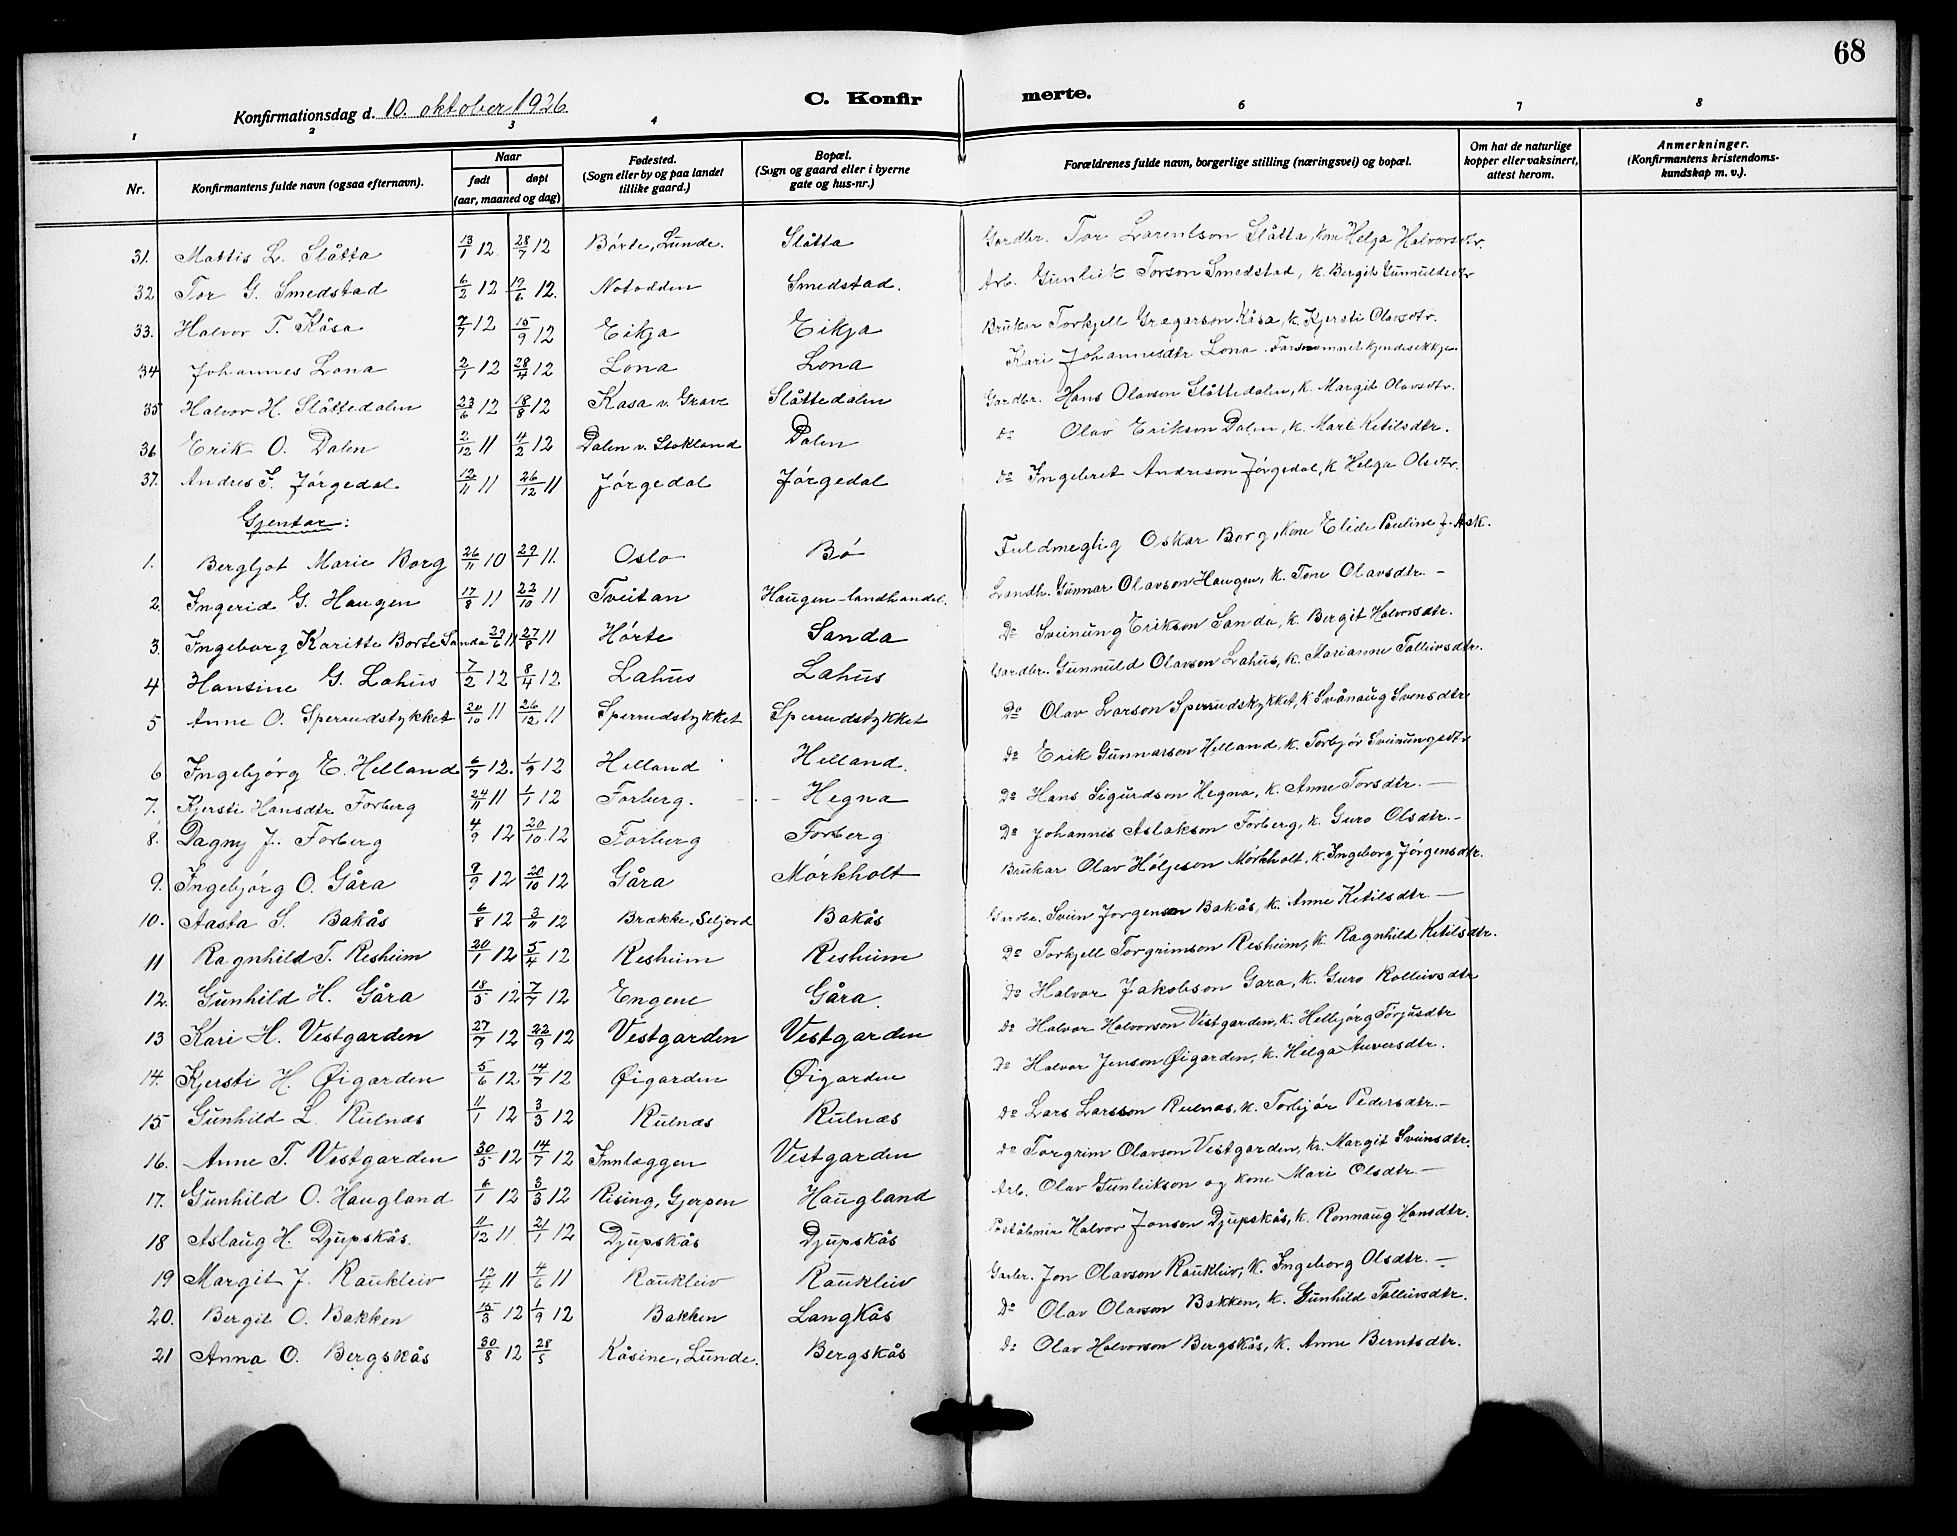 68
Konfirmationsdag d. 10. oktober 1926.
C. Konfirmerte.
1 2 3 4 6 7 8
Nr. Konfirmantens fulde navn (ogsaa efternavn). Naar født døpt (aar, maaned og dag) Fødested. (Sogn eller by og paa landet tillike gaard.) Bopæl. (Sogn og gaard eller i byerne gate og hus-nr.) Forældrenes fulde navn, borgerlige stilling (næringsvei) og bopæl. Om hat de naturlige kopper eller vaksinert, attest herom. Anmerkninger. (Konfirmantens kristendoms-kundskap m. v.).
31. Mattis L. Slåtta 13/1 12 28/7 12 Børte, Lunde. Slåtta Gardbr. Tor Larentson Slåtta, kone Helga Halvorsdtr.
32 Tor G. Smedstad 6/2 12 17/6 12. Notodden Smedstad. Arb. Gunleik Torson Smedstad, k. Bergit Gunnuldsdtr
33. Halvor T. Kåsa 7/7 12 15/9 12 Eikja Eikja Brukar Torkjell Gregarson Kåsa, k. Kjersti Olavsdtr.
34 Johannes Lona 2/1 12 28/4 12 Lona Lona Kari Johannesdtr Lona. Farsnamnet kjendes ikkje.
35 Halvor H. Slåttedalen 23/6 12 18/8 12 Kasa v. Grave Slåttedalen Gardbr. Hans Olavson Slåttedalen, k. Margit Olavsdtr.
36 Erik O. Dalen 2/12 11 4/2 12 Dalen v. Stokland Dalen do Olav Erikson Dalen, k. Mari Ketilsdtr.
37. Andres I. Jørgedal 12/11 11 26/12 11 Jørgedal Jørgedal do Ingebret Andreson Jørgedal, k Helga Olsdtr.
Gjentar:
1. Bergljot Marie Borg 26/11 10 29/1 11. Oslo Bø Fuldmegtig Oskar Borg, kone Elide Pauline f. Ask.
2. Ingerid G. Haugen 17/8 11 22/10 11 Tveitan Haugen - landhandel. Landh. Gunnar Olavson Haugen, k. Tone Olavsdtr. -
3. Ingeborg Karitte Borte Sanda 29/6 11 27/8 11 Hørte Sanda Do Sveinung Erikson Sanda, k. Bergit Halvorsdtr.
4 Hansine G. Lahus 7/2 12 8/4 12 Lahus Lahus Gardbr. Gunnuld Olavson Lahus, k. Marianne Tallivsdtr.
5 Anne O. Sperrudstykket 20/10 11 26/12 11 Sperrudstykket Sperrudstykket Do Olav Larson Sperrudstykket, k Svånaug Svensdtr
6 Ingebjørg E. Helland 6/7 12. 1/9 12 Helland Helland. do Erik Gunnarson Helland, k. Torbjør Sveinungsdtr
7. Kjersti Hansdtr Forberg 24/11 11 1/1 12 Forberg. - - Hegna Do Hans Sigurdson Hegna, k. Anne Torsdtr. -
8. Dagny J. Forberg 4/9 12 20/10 12 Forberg Forberg Do Johannis Aslakson Forberg, k. Guro Olsdtr. -
9. Ingebjørg O. Gåra 9/9 12 20/10 12 Gåra Mørkholt Brukar Olav Høljeson Mørkholt, k. Ingeborg Jørgensdtr.
10. Aasta S. Bakås 6/8 12 3/11 12 Brække, Seljord Bakås Gardbr. Svein Jørgenson Bakås, k. Anne Ketilsdtr. -
11 Ragnhild T. Resheim 20/1 12 5/4 12 Resheim Resheim Do Torkjell Torgrimson Resheim, k. Ragnhild Ketilsdtr.
12. Gunhild H. Gåra 18/5 12 7/7 12 Engene Gåra. do Halvor Jakobson Gara, k. Guro Rolleivsdtr
13 Kari H. Vestgarden 27/7 12 22/9 12 Vestgarden Vestgarden do Halvor Halvorson Vestgarden, k. Helbjørg Torjusdtr
14. Kjersti H. Øigarden 5/6 12 14/7 12 Øigarden Øigarden Do Halvor Jenson Øigarden, k. Helga Auversdtr.
15 Gunhild L. Rulnæs 11/1 12 3/3 12 Rulnæs Rulnæs do Lars Larsson Rulnæs, k. Torbjør Pedersdtr. -
16. Anne T. Vestgarden 30/5 12 14/7 12 Innlæggen Vestgarden do Torgrim Olavson Vestgarden, k. Margit Sveinsdtr.
17. Gunhild O. Haugland 6/1 12 3/3 12 Rising, Gjerpen Haugland Arb. Olav Gunleikson og kone Mari Olsdtr. -
18 Aslaug H. Djupskås. 11/12 11 21/1 12 Djupskås Djupskås Halvor Jonson Djupskås, k. Rønnaug Hansdtr.
19 Margit J. Raukleiv 12/4 11 4/6 11 Raukleiv Raukleiv Garbr. Jon Olavson Raukleiv, k. Ingeborg Olsdtr. -
20. Bergit O. Bakken 15/3 12 1/9 12 Bakken Langkås Do Olav Olavson Bakken, k. Gunhild Talleivsdtr.
21 Anna O. Bergskås 30/8 12 28/5 Kåsine, Lunde. Bergskås Do Olav Halvorson Bergskås, k. Anne Berntsdtr.